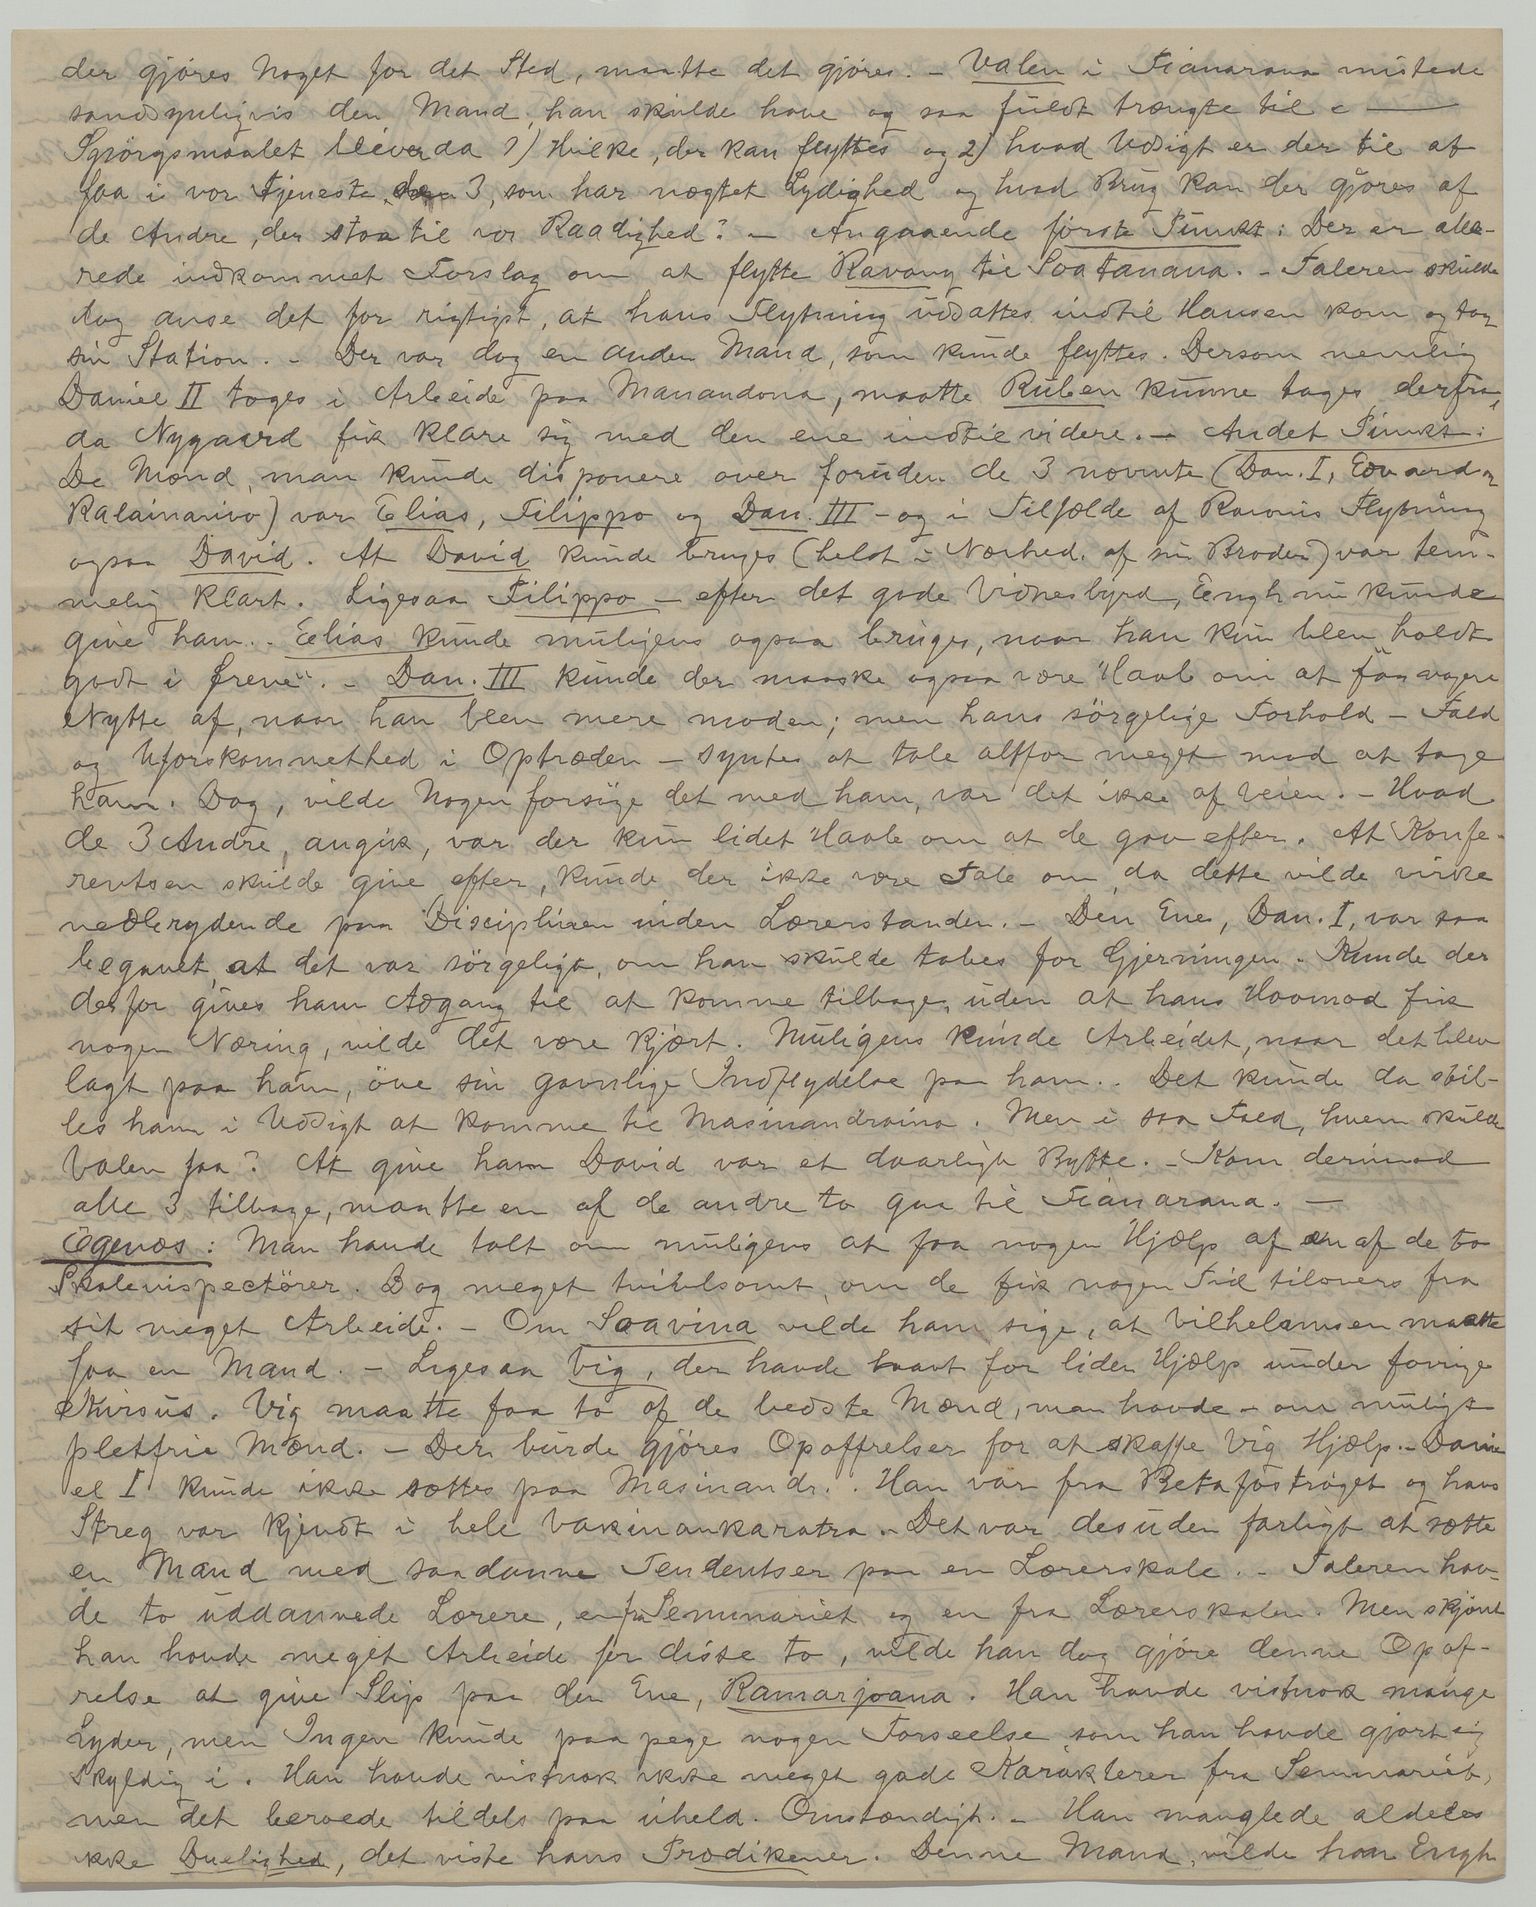 der gjøres Noget for det Sted, maatte det gjøres. – Valen i Fianarana mistede
sandsynligvis den Mand, han skulde have og saa fuldt trængte til –
Spørgsmaalet bliver da 1) Hvilke, der kan flyttes og 2) hvad Udsigt er der til at
faa i vor Tjeneste de 3, som har nægtet Lydighed og hvad Brug kan der gjøres af
de Andre, der staa til vor Raadighed? – Angaaende første Punkt: Der er alle-
rede indkommet Forslag om at flytte Ravony til Soatanana. – Taleren skulde
dog anse det for rigtigst, at hans Flytning udsattes indtil Hansen kom og tog
sin Station. – Der var dog en anden Mand, som kunde flyttes. Dersom nemlig
Daniel II toges i Arbeide paa Manandona, maatte Ruben kunne tages derfra,
da Nygaard fik klare sig med den ene indtil videre. – Andet Punkt:
De Mænd, man kunde disponere over foruden de 3 nævnte (Dan. I, Edvard og
Ralainarivo) var Elias, Filippo og Dan. III – og i Tilfælde af Ravonis Flytning
ogsaa David. At David kunde bruges (helst i Nærhed. af sin Broder) var tem-
melig klart. Ligesaa Filippo – efter det gode Vidnesbyrd, Engh nu kunde
give ham. – Elias kunde muligens ogsaa bruges, naar han kun blev holdt
godt i Ørene". – Dan. III kunde der maaske ogsaa være Haab om at faa nogen
Nytte af, naar han blev mere moden; men hans sørgelige Forhold – Fald
og Uforskammethed i Optræden – syntes at tale altfor meget mod at tage
ham. Dog, vilde Nogen forsøge det med ham, var det ikke af Veien. – Hvad
de 3 Andre angik, var der kun lidet Haab om at de gav efter. At Konfe-
rentsen skulde give efter, kunde der ikke være Tale om, da dette vilde virke
nedbrydende paa Disciplinen inden Lærerstanden. – Den Ene, Dan. I, var saa
begavet, at det var sørgeligt, om han skulde tabes for Gjerningen. Kunde der
derfor gives ham Adgang til at komme tilbage, uden at hans Hovmod fik
nogen Næring, vilde det være kjært. Muligens kunde Arbeidet, naar det blev
lagt paa ham, øve sin gavnlige Indflydelse paa ham. . Det kunde da stil-
les ham i Udsigt at komme til Masinandraina. Men i saa Fald, hvem skulde
Valen faa? At give ham David var et daarligt Bytte. – Kom derimod
alle 3 tilbage, maatte en af de andre to gaa til Fianarana. –
Egenæs: Man havde talt om muligens at faa nogen Hjælp af en af de to
Skoleinspectører. Dog meget tvivlsomt, om de fik nogen Tid tilovers fra
sit meget Arbeide. – Om Soavina vilde han sige, at Vilhelmsen maatte
faa en Mand. – Ligesaa Vig, der havde havt for liden Hjælp under forrige
Kursus. Vig maatte faa to af de bedste Mænd, man havde – om muligt
pletfrie Mænd. – Der burde gjøres Opoffrelser for at skaffe Vig Hjælp. – Dani-
el I kunde ikke sættes paa Masinandr. . Han var fra Betafostrøget og hans
Streg var kjendt i hele Vakinankaratra. – Det var desuden farligt at sætte
en Mand med saadanne Tendentser paa en Lærerskole. – Taleren hav-
de to uddannede Lærere, en fra Seminariet og en fra Lærerskolen. Men skjønt
han havde meget Arbeide for disse to, vilde han dog gjøre denne Opof-
relse at give Slip paa den Ene, Ramarjoana. Han havde vistnok mange
Lyder, men Ingen kunde paapege nogen Forseelse som han havde gjort sig
skyldig i. Han havde vistnok ikke meget gode Karakterer fra Seminariet,
men det beroede tildels paa uheld. Omstændigh. – Han manglede aldeles
ikke Duelighed, det viste hans Prædikener. Denne Mand, vilde han Engh